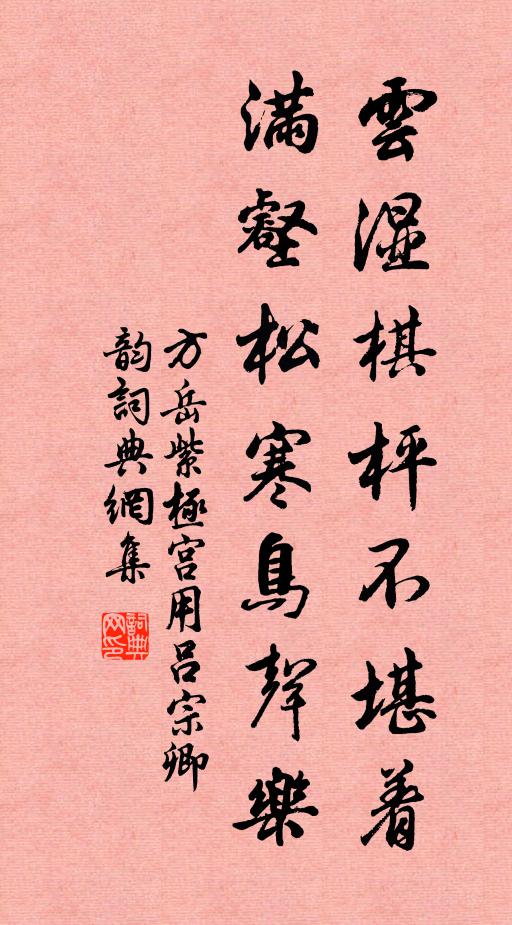 雲濕棋枰不堪着
滿壑松寒鳥聲樂
方岳紫極宮用呂宗卿
韵詞典網集
詞典網印